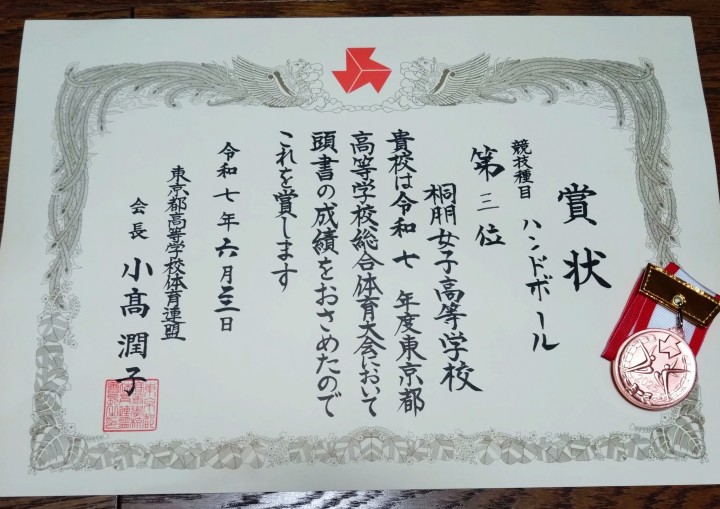 賞状
競技種目 ハンドボール
第三位
桐朋女子高等学校
貴校は令和七年度東京都
高等学校総合体育大会において
頭書の成績をおさめたので
これを賞します
令和七年六月二二日
東京都高等学校体育連盟
会長 小髙潤子